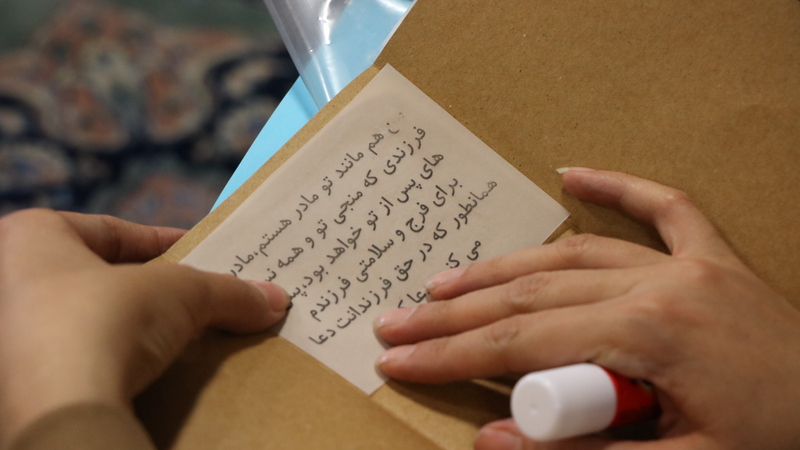 هم مانند تو مادر هستم، مادر
فرزندی که منجی تو و همه
های پس از تو خواهد بود، پس
برای فرج و سلامتی فرزندم
همانطور که در حق فرزندانت دعا
می